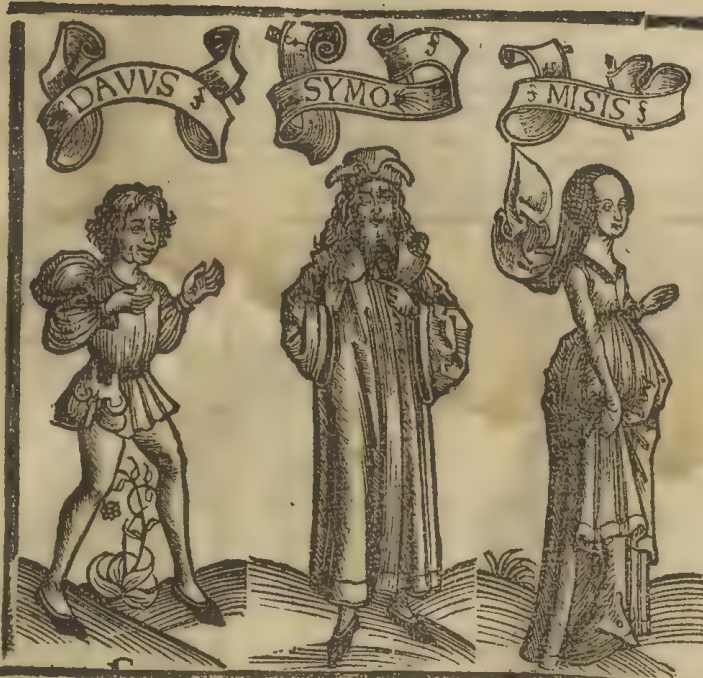 DAVVS
SYMO
MISIS